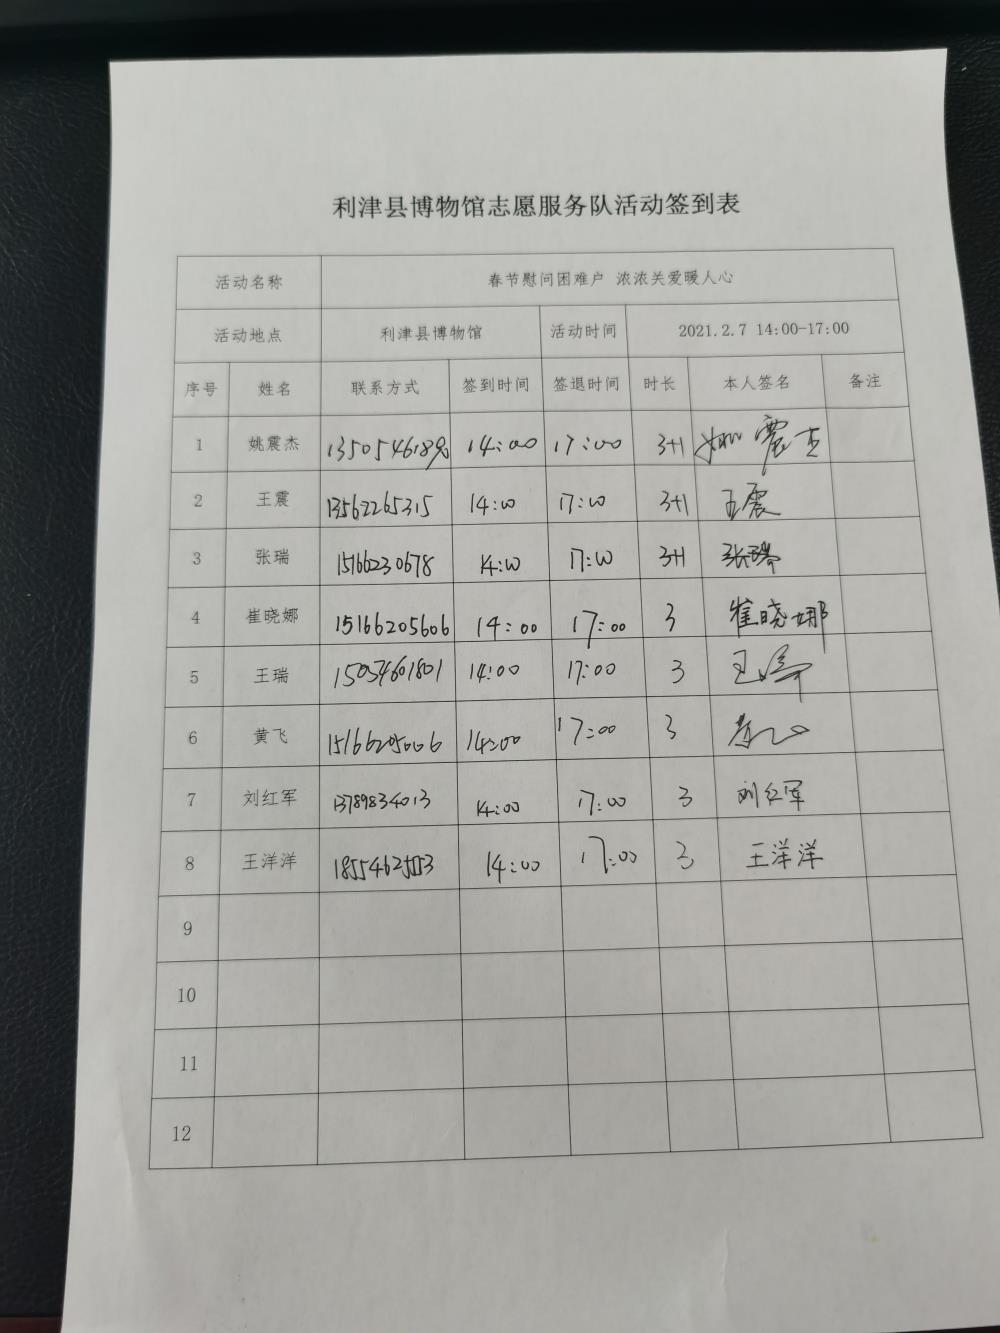 利津县博物馆志愿服务队活动签到表
活动名称 春节慰问困难户 浓浓关爱暖人心
活动地点 利津县博物馆 活动时间 2021.2.7 14:00-17:00
序号 姓名 联系方式 签到时间 签退时间 时长 本人签名 备注
1 姚震杰 14:00 17:00 3+1 姚震杰
2 王震 13562265315 14:00 17:00 3+1 王震
3 张瑞 15166230678 14:00 17:00 3+1 张瑞
4 崔晓娜 15166205606 14:00 17:00 3 崔晓娜
5 王瑞 15054601801 14:00 17:00 3 王瑞
6 黄飞 14:00 17:00 3 黄飞
7 刘红军 13789834013 14:00 17:00 3 刘红军
8 王洋洋 14:00 17:00 3 王洋洋
9
10
11
12